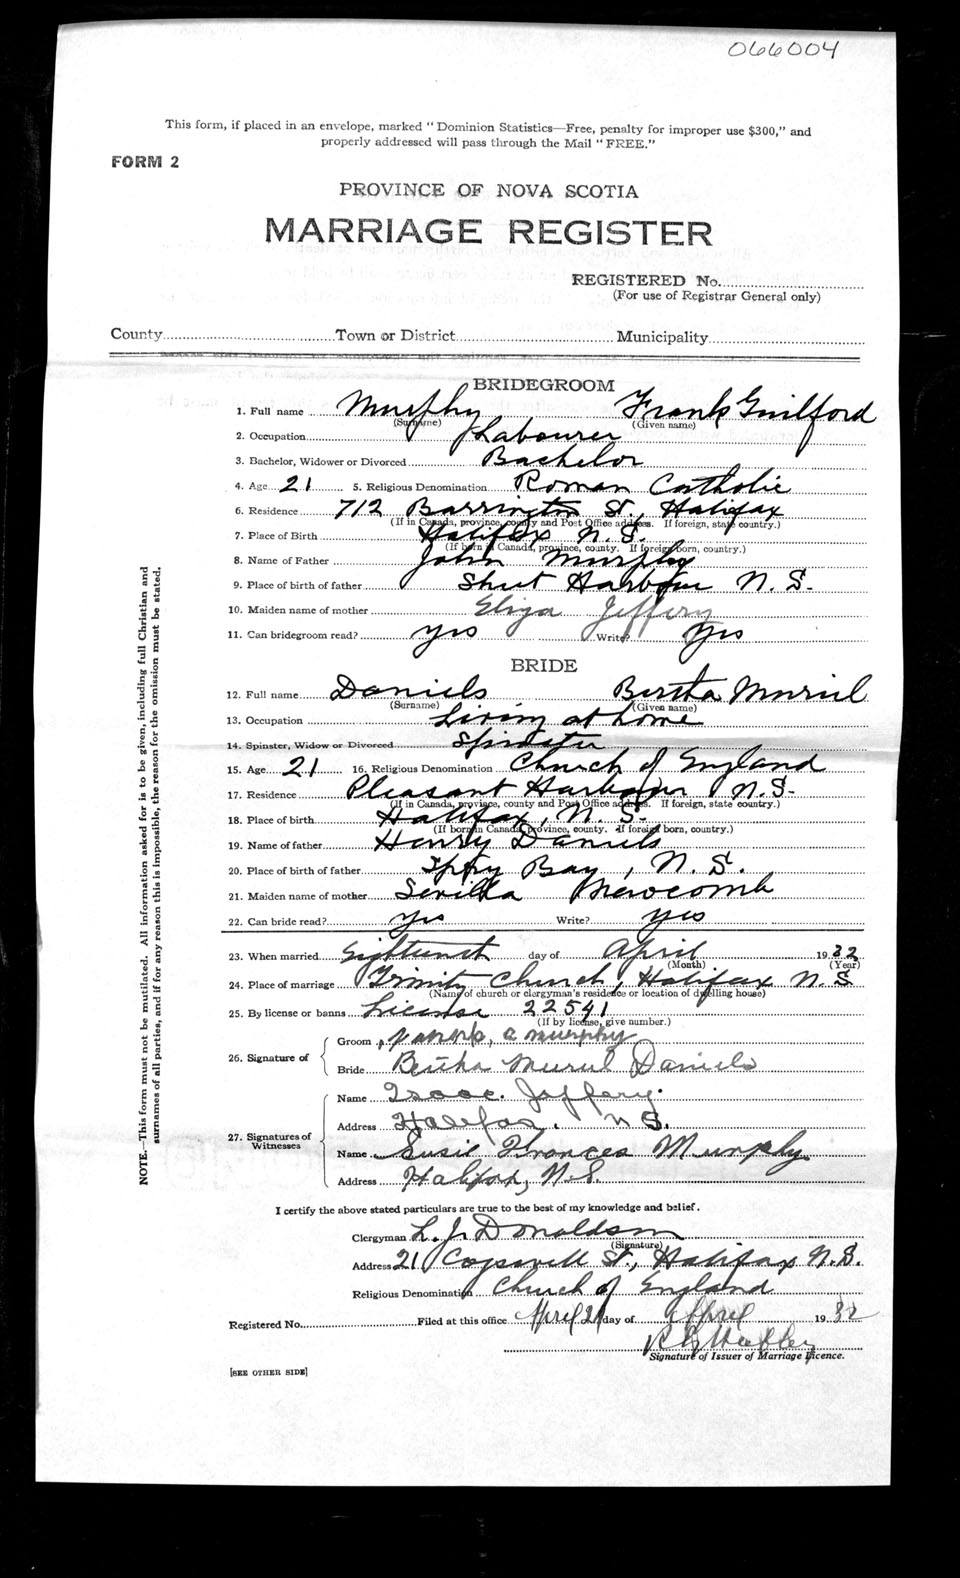 066004
This form, if placed in an envelope, marked "Dominion Statistics—Free, penalty for improper use $300," and
properly addressed will pass through the Mail "FREE."
FORM 2
PROVINCE OF NOVA SCOTIA
MARRIAGE REGISTER
REGISTERED No.
(For use of Registrar General only)
County Town or District Municipality
BRIDEGROOM
1. Full name Murphy Frank Guilford
(Surname) (Given name)
2. Occupation Labourer
3. Bachelor, Widower or Divorced Bachelor
4. Age 21 5. Religious Denomination Roman Catholic
6. Residence 712 Barrington St., Halifax
(If in Canada, province, county and Post Office address. If foreign, state country.)
7. Place of Birth Halifax N.S.
(If born in Canada, province, county. If foreign born, country.)
8. Name of Father John Murphy
9. Place of birth of father Shut Harbour N.S.
10. Maiden name of mother Eliza Jeffery
11. Can bridegroom read? yes Write? yes
BRIDE
12. Full name Daniels Bertha Muriel
(Surname) (Given name)
13. Occupation Living at home
14. Spinster, Widow or Divorced Spinster
15. Age 21 16. Religious Denomination Church of England
17. Residence Pleasant Harbour N.S.
(If in Canada, province, county and Post Office address. If foreign, state country.)
18. Place of birth Halifax, N.S.
(If born in Canada, province, county. If foreign born, country.)
19. Name of father Henry Daniels
20. Place of birth of father Bay, N.S.
21. Maiden name of mother Sevilla Newcomb
22. Can bride read? yes Write? yes
23. When married Eighteenth day of April 1932
(Month) (Year)
24. Place of marriage Trinity Church, Halifax N.S
(Name of church or clergyman's residence or location of dwelling house)
25. By license or banns License 22541
(If by license, give number.)
26. Signature of
Groom murphy
Bride Bertha Muriel Daniels
27. Signatures of Witnesses
Name Isaac Jeffery.
Address Halifax. N S.
Name Susie Frances Murphy
Address Halifax, N.S.
I certify the above stated particulars are true to the best of my knowledge and belief.
Clergyman L. J. Donaldson
(Signature)
Address 21 Cogswell St., Halifax N.S.
Religious Denomination Church of England
Registered No. Filed at this office April 21 day of April 1932
Signature of Issuer of Marriage Licence.
[SEE OTHER SIDE]
NOTE.—This form must not be mutilated. All information asked for is to be given, including full Christian and
surnames of all parties, and if for any reason this is impossible, the reason for the omission must be stated.